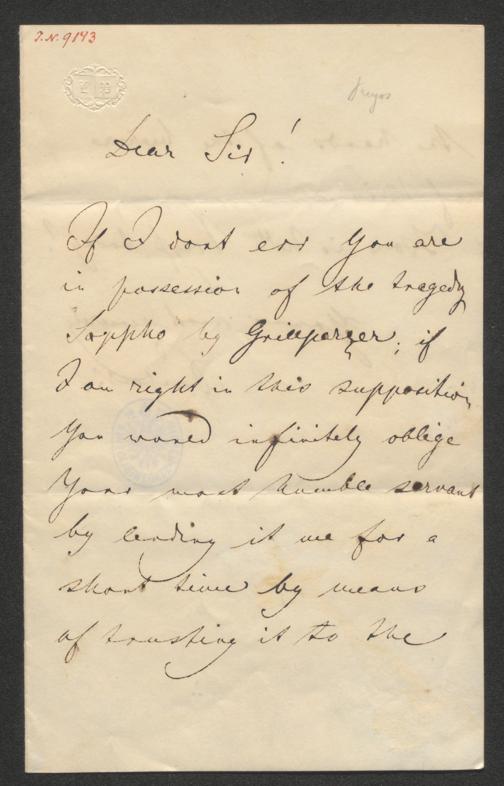 J.N. 9193
Dear Sir!
If I dont err You are
in possession of the tragedy
Sappho by Grillparzer; if
I am right in this supposition
You would infinitely oblige
Your most humble servant
by lending it me for a
short time by means
of trusting it to the